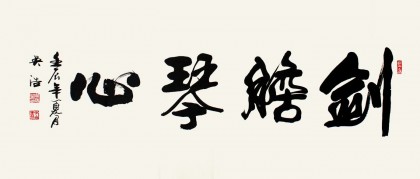 劍膽琴心
壬辰年夏月
吴浩